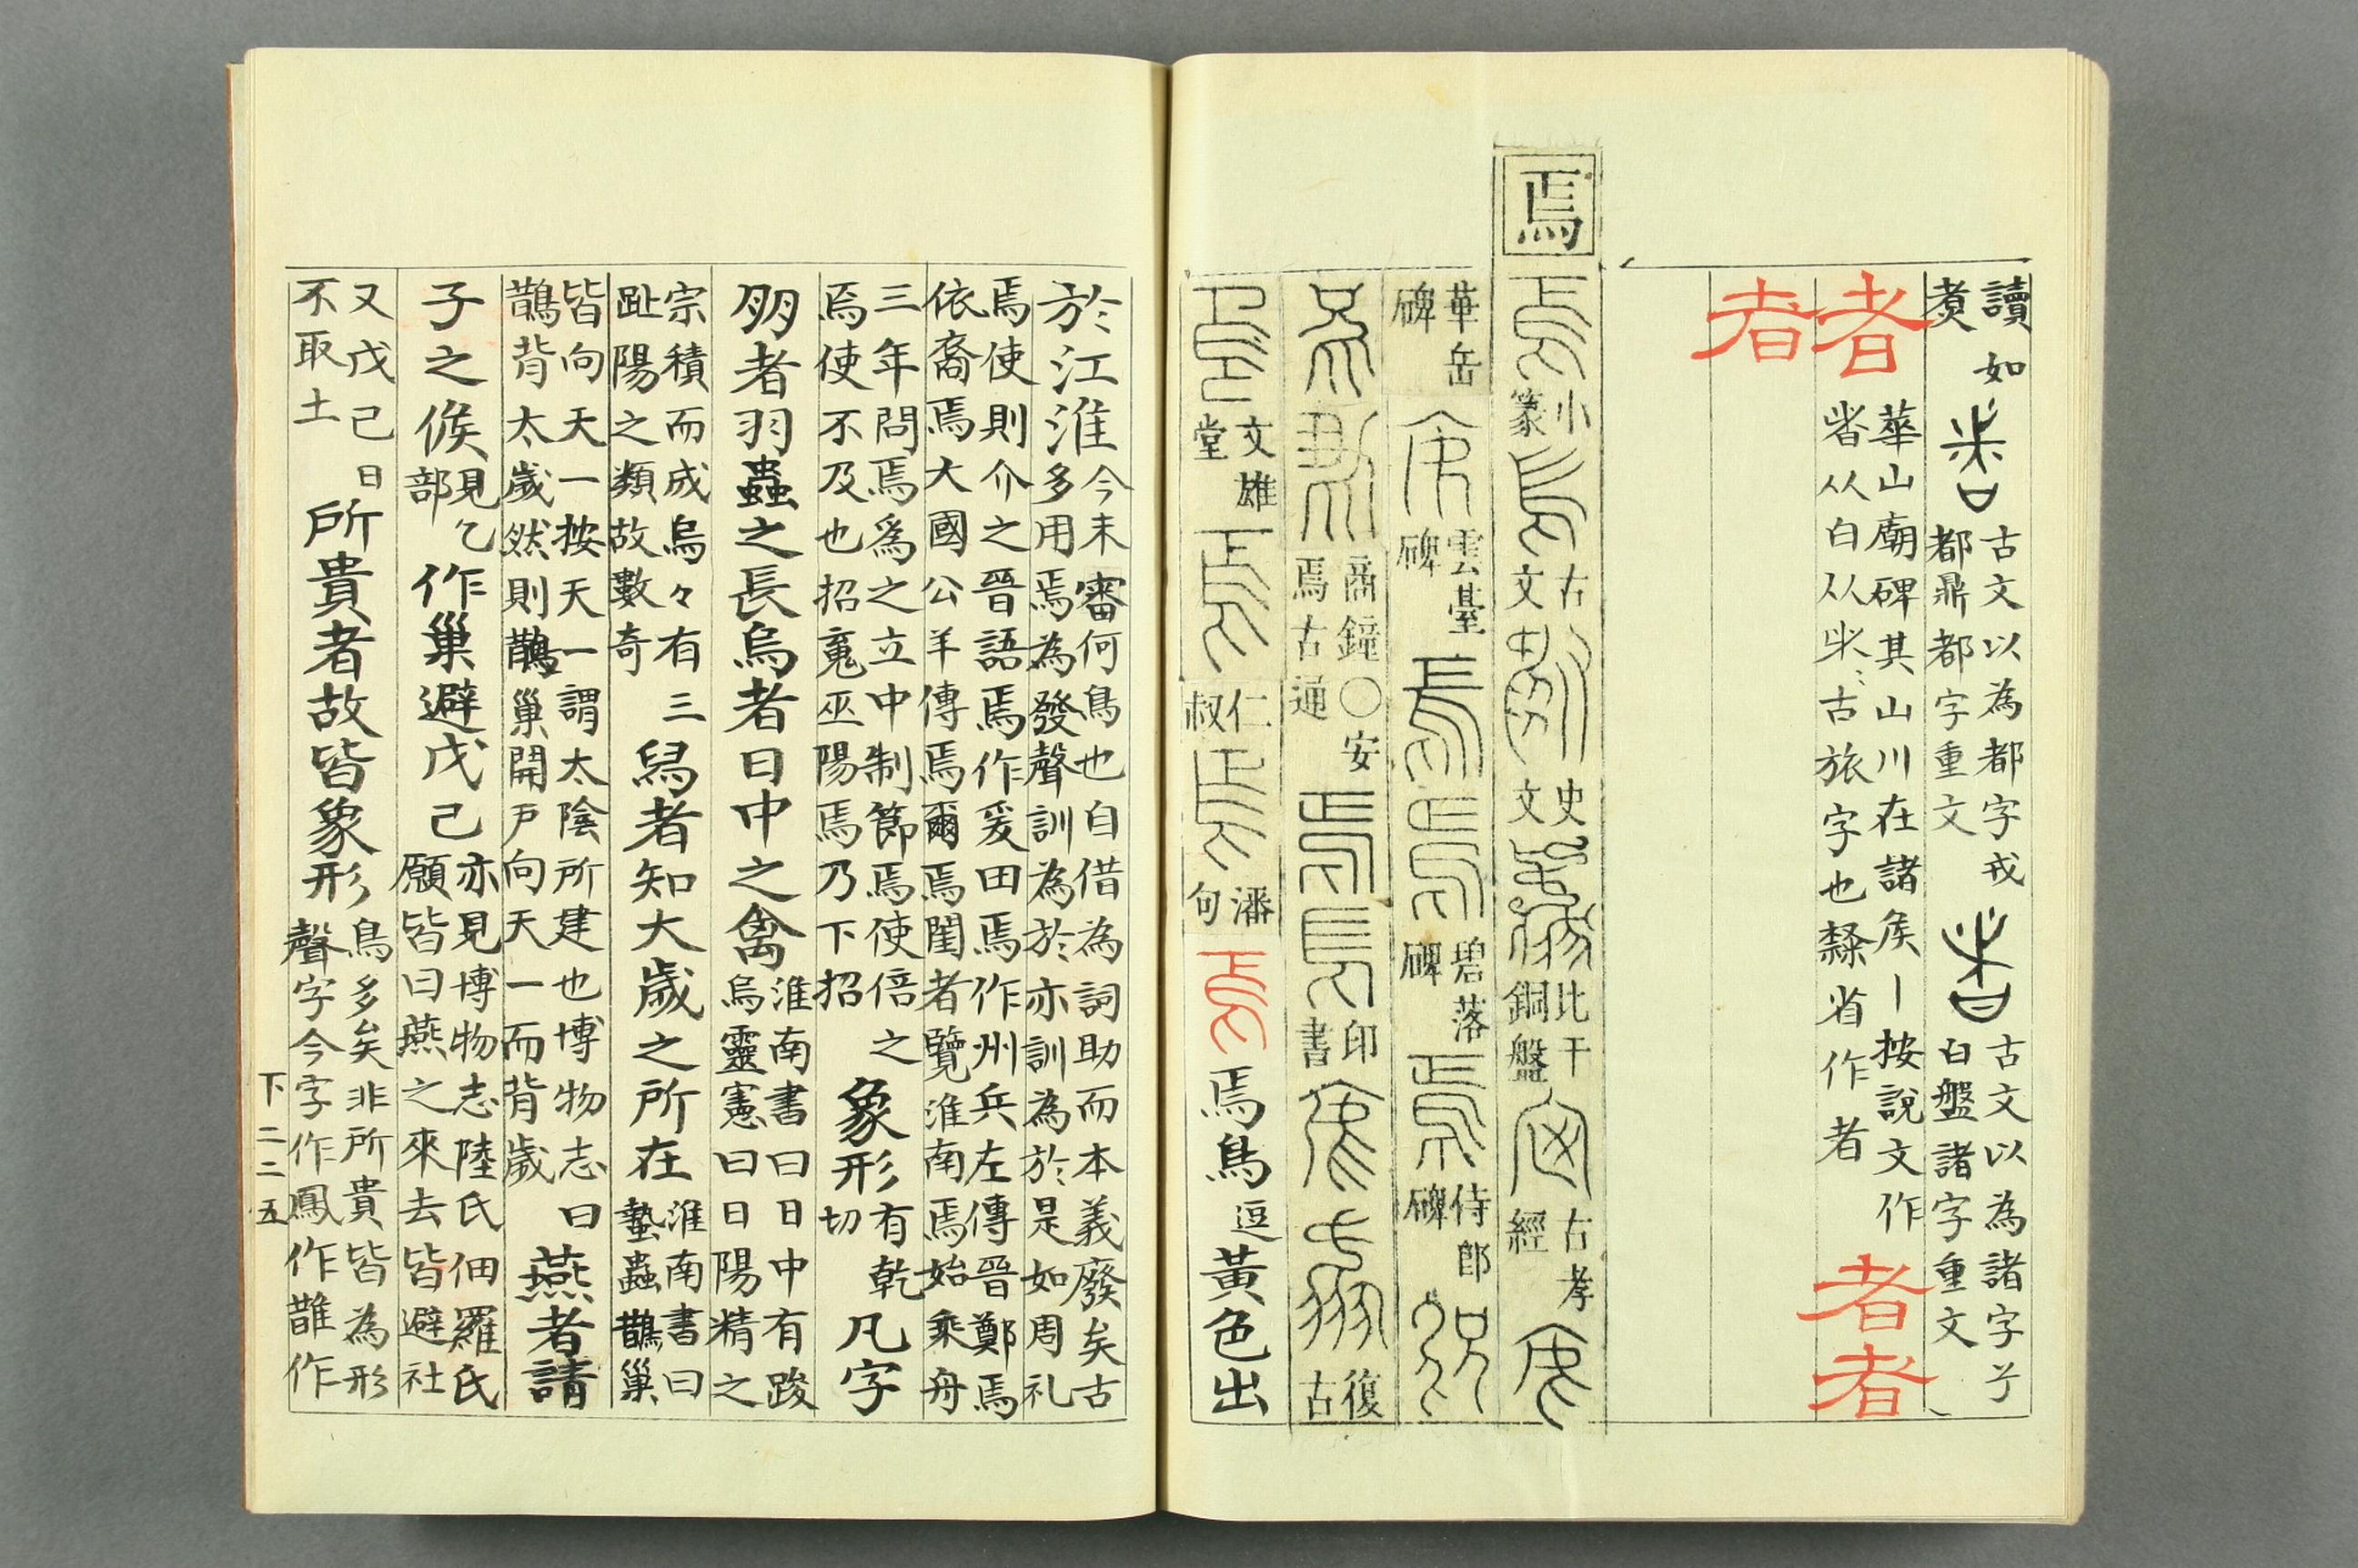 讀如
煑
古文以為都字戎
都鼎都字重文
古文以為諸字兮
白盤諸字重文
者
華山廟碑其山川在諸矦丨按說文作
㫺从白从𣥐古旅字也隸省作者
者者
者
焉
小篆
古文
史文
比干銅盤
古孝經
華岳碑
雲臺碑
碧落碑
侍郎碑
商鐘〇安
焉古通
印書
復古
文雄堂
仁叔
潘句
焉
焉鳥逗黃色出
於江淮
今未審何鳥也自借為詞助而本義廢矣古
多用焉為發聲訓為於亦訓為於是如周礼
焉使則介之晉語焉作爰田焉作州兵左傳晉鄭焉
依裔焉大國公羊傳焉爾焉閨者覽淮南焉始乘舟
三年問焉爲之立中制節焉使倍之
焉使不及也招䰟巫陽焉乃下招
象形
有乾切
凡字
朋者羽蟲之長烏者日中之禽
淮南書曰日中有踆
烏靈憲曰日陽精之
宗積而成烏々有三
趾陽之類故數奇
舄者知大歲之所在
淮南書曰
蟄蟲鵲巢
皆向天一按天一謂太陰所建也博物志曰
鵲背太歲然則鵲巢開戶向天一而背歲
燕者請
子之候
見乙部
作巢避戊己
亦見博物志陸氏佃羅氏
願皆曰燕之來去皆避社
又戊己日
不取土
所貴者故皆象形
鳥多矣非所貴皆為形
聲字今字作鳳作鵲作
下二二五